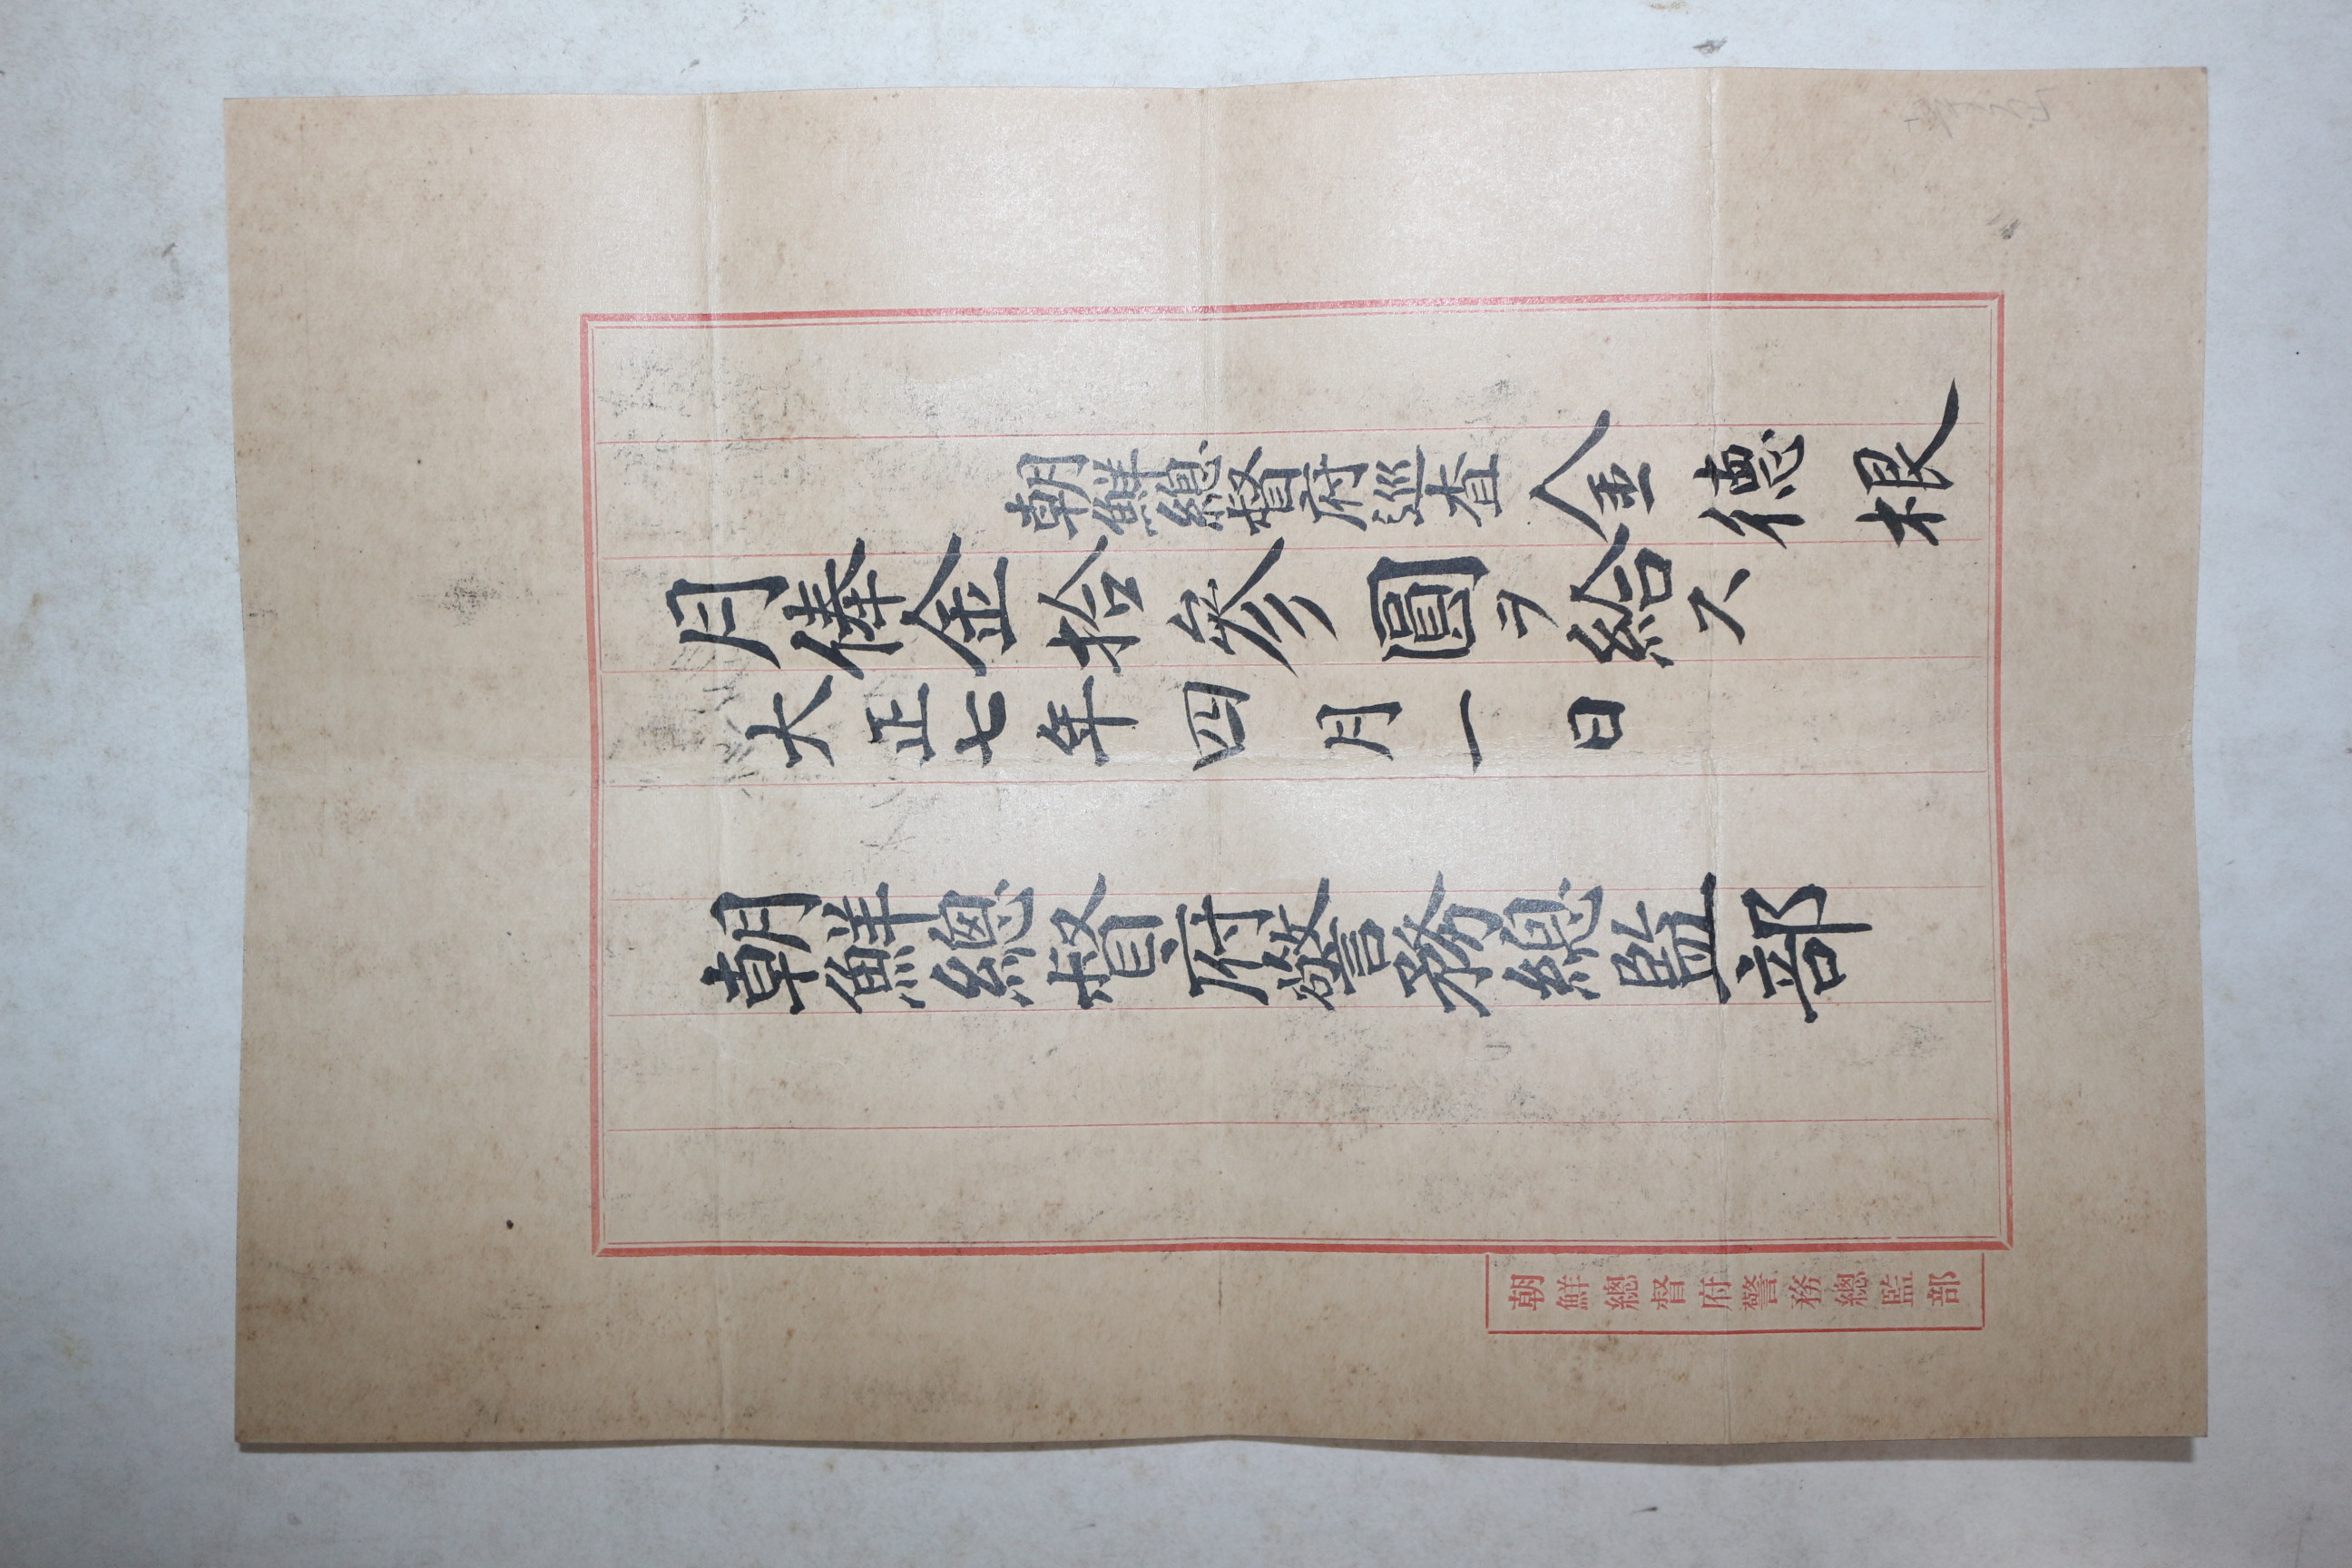 朝鮮總督府巡查 金德根
月俸金拾參圓ヲ給ス
大正七年四月一日
朝鮮總督府警務總監部
朝鮮總督府警務總監部